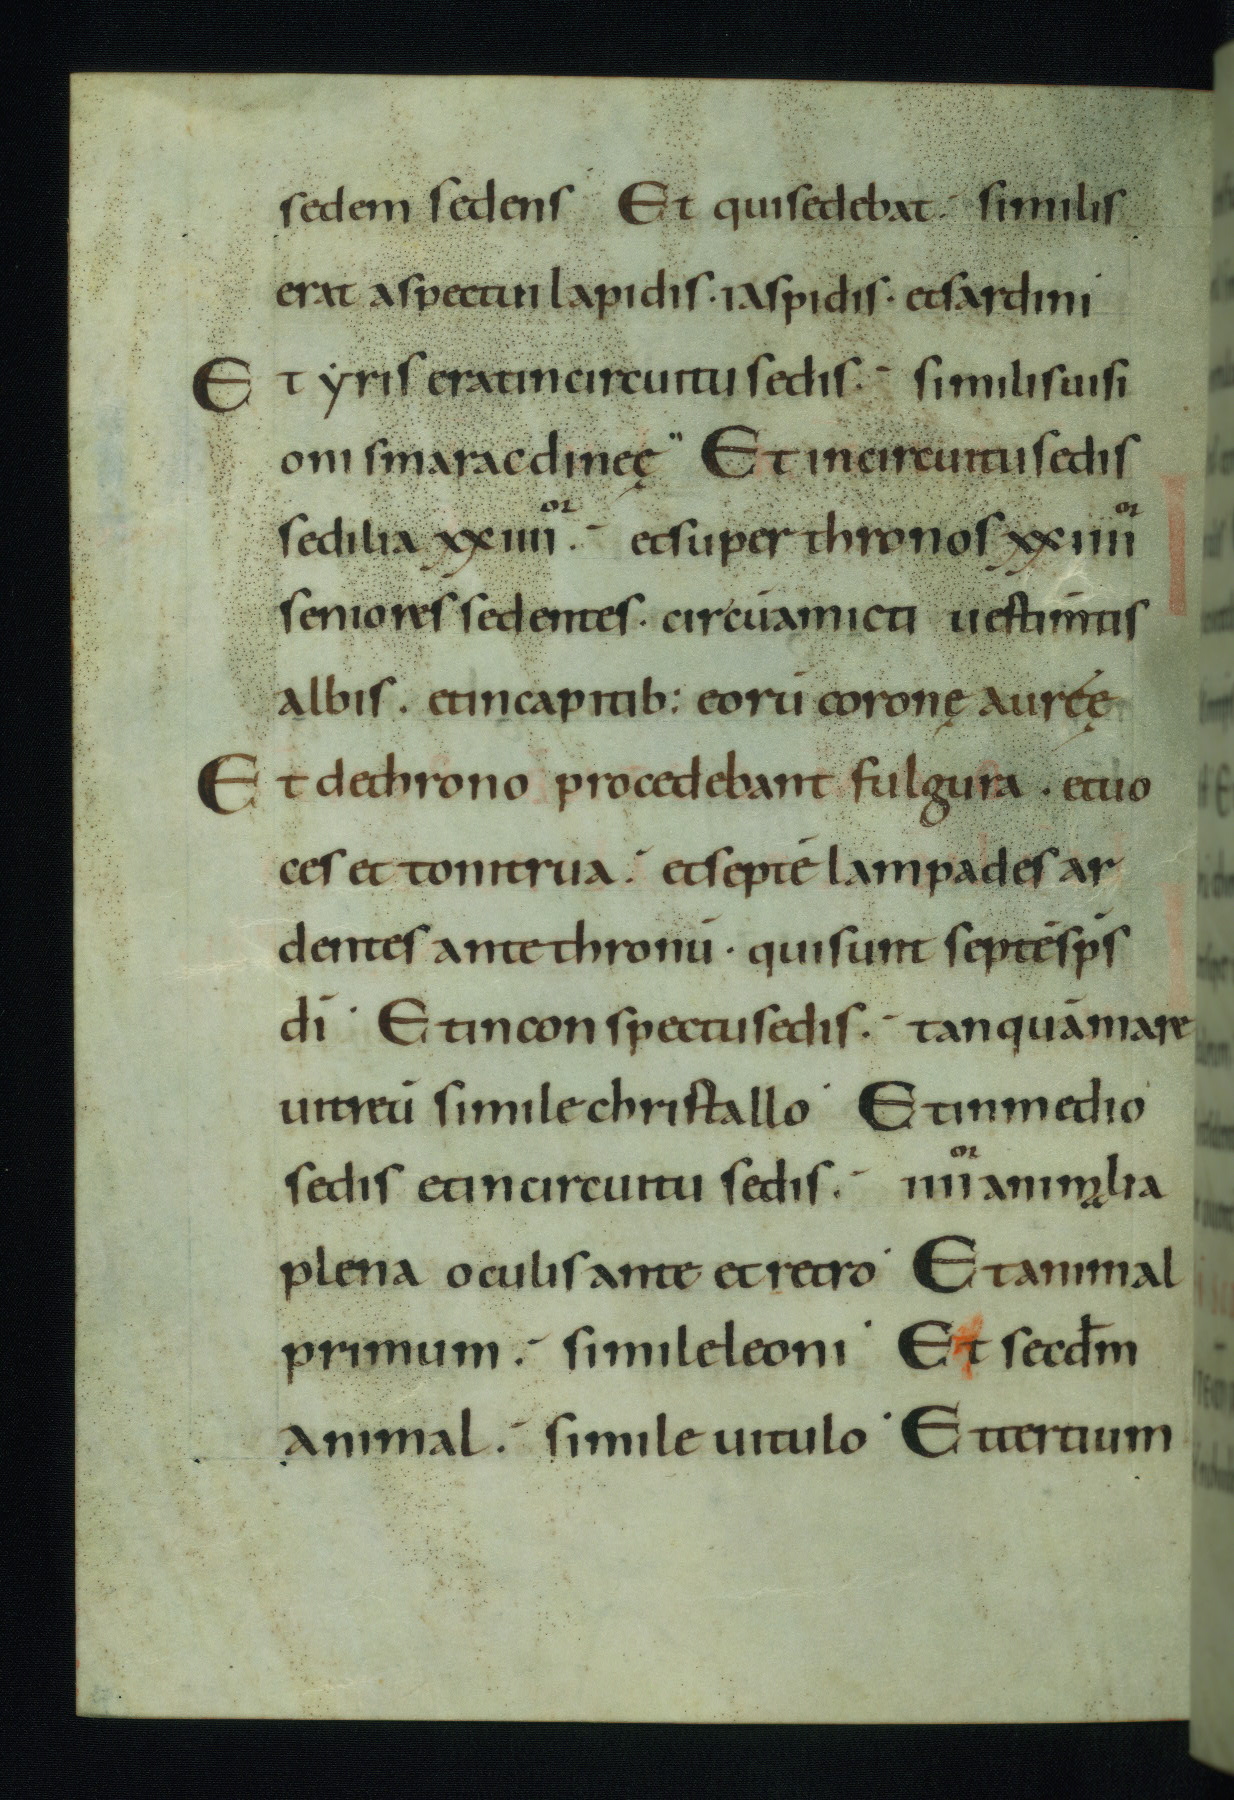 sedem sedens Et qui sedebat. similis
erat aspectui lapidis. iaspidis. et sardini
Et yris erat in circuitu sedis. similis uisi
oni smaracdineę Et in circuitu sedis
sedilia xxiiii or. et super thronos xxiiii or
seniores sedentes. circūamicti uestim̄tis
albis. et in capitib: eorū coronę aureę
Et de throno procedebant fulgura. et uo
ces et tonitrua. et septē lampades ar
dentes ante thronū. qui sunt septē sp̄s
dī Et in conspectu sedis. tanquā mare
uitreū simile christallo Et in medio
sedis et in circuitu sedis. iiii or animalia
plena oculis ante et retro Et animal
primum. simile leoni Et secd̄m
animal. simile uitulo Et tertium